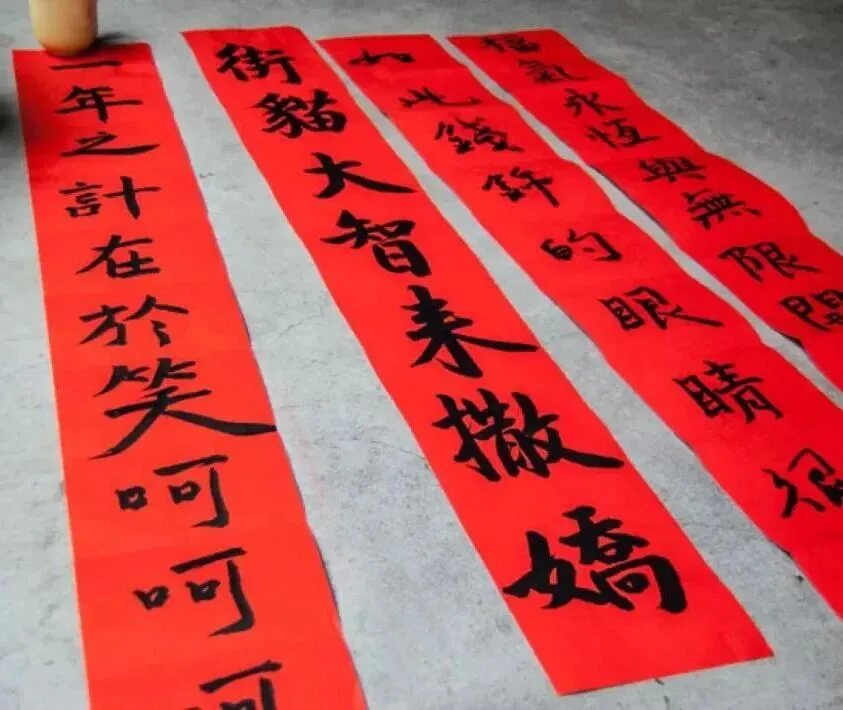 福氣永恆與無限
如此的眼睛很
街貓大智来撒嬌
一年之計在於笑呵呵呵